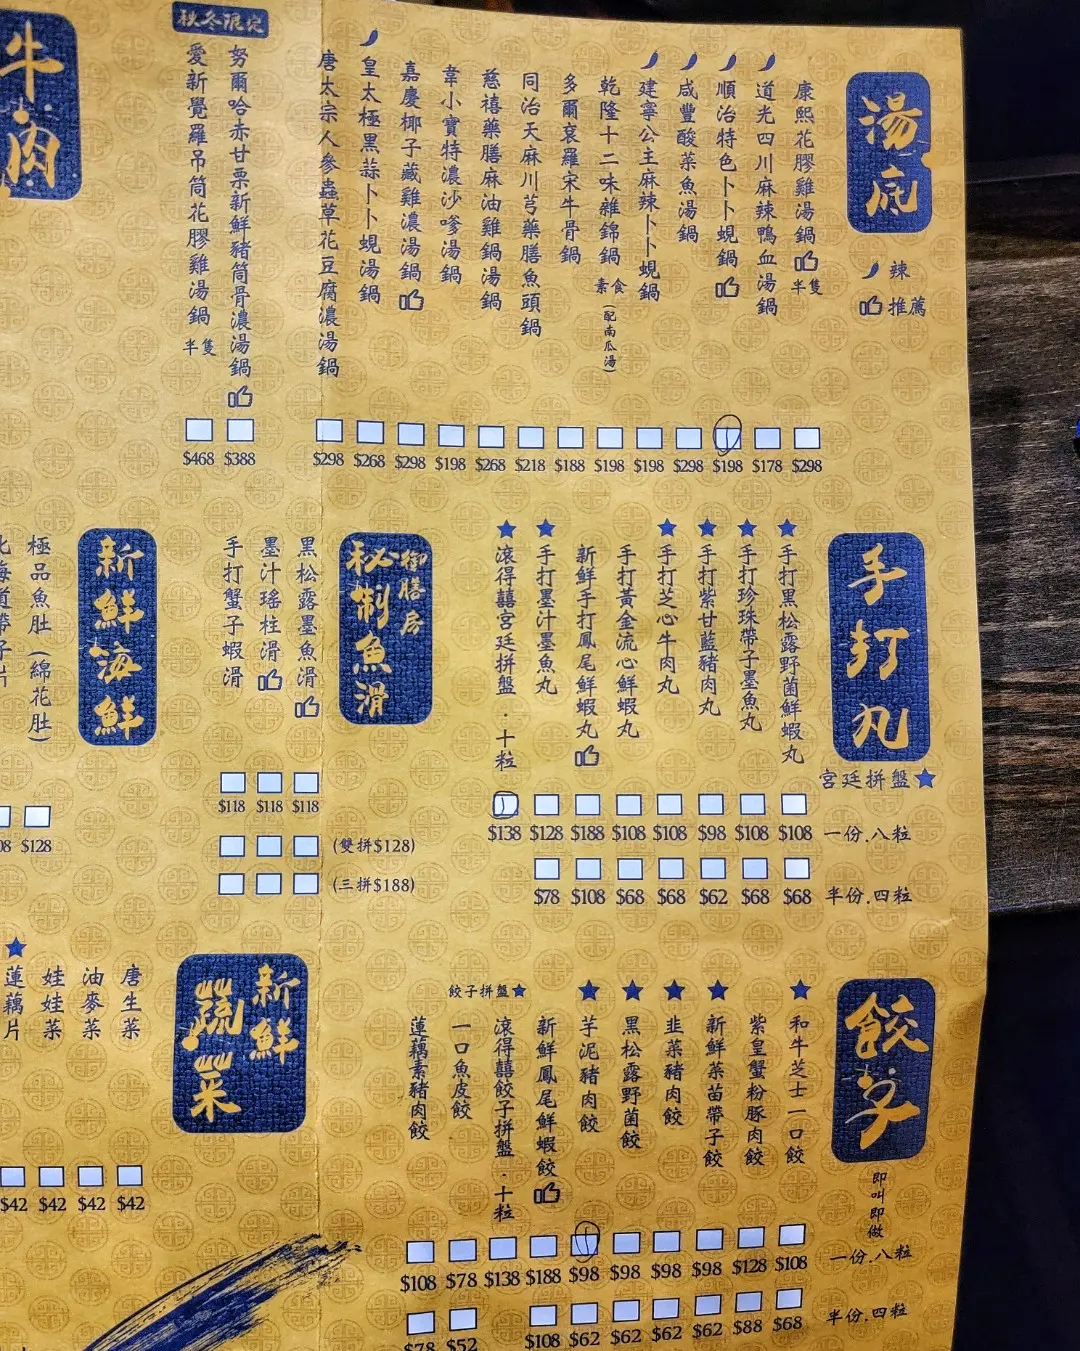 湯底
辣
推薦
康熙花膠雞湯鍋 半隻
道光四川麻辣鴨血湯鍋
順治特色卜卜蜆鍋
咸豐酸菜魚湯鍋
建寧公主麻辣卜卜蜆鍋
乾隆十二味雜錦鍋 素食 (配南瓜湯)
多爾袞羅宋牛骨鍋
同治天麻川芎藥膳魚頭鍋
慈禧藥膳麻油雞鍋湯鍋
韋小寶特濃沙嗲湯鍋
嘉慶椰子藏雞濃湯鍋
皇太極黑蒜卜卜蜆湯鍋
唐太宗人參蟲草花豆腐濃湯鍋
秋冬限定
努爾哈赤甘栗新鮮豬筒骨濃湯鍋
愛新覺羅吊筒花膠雞湯鍋 半隻
$468 $388 $298 $268 $298 $198 $268 $218 $188 $198 $198 $298 $198 $178 $298
牛肉
手打丸
宮廷拼盤★
★手打黑松露野菌鮮蝦丸
★手打珍珠帶子墨魚丸
★手打紫甘藍豬肉丸
★手打芝心牛肉丸
手打黃金流心鮮蝦丸
新鮮手打鳳尾鮮蝦丸
★手打墨汁墨魚丸
★滾得囍宮廷拼盤．十粒
$138 $128 $188 $108 $108 $98 $108 $108 一份.八粒
$78 $108 $68 $68 $62 $68 $68 半份.四粒
御膳房
秘制魚滑
黑松露墨魚滑
墨汁瑤柱滑
手打蟹子蝦滑
$118 $118 $118
(雙拼$128)
(三拼$188)
新鮮海鮮
極品魚肚(綿花肚)
$128
餃子
即叫即做
★和牛芝士一口餃
紫皇蟹粉豚肉餃
★新鮮菜苗帶子餃
★韭菜豬肉餃
★黑松露野菌餃
★芋泥豬肉餃
新鮮鳳尾鮮蝦餃
餃子拼盤★
滾得囍餃子拼盤．十粒
一口魚皮餃
蓮藕素豬肉餃
$108 $78 $138 $188 $98 $98 $98 $98 $128 $108 一份.八粒
$78 $52 $108 $62 $62 $62 $62 $88 $68 半份.四粒
新鮮蔬菜
唐生菜
油麥菜
娃娃菜
★蓮藕片
$42 $42 $42 $42